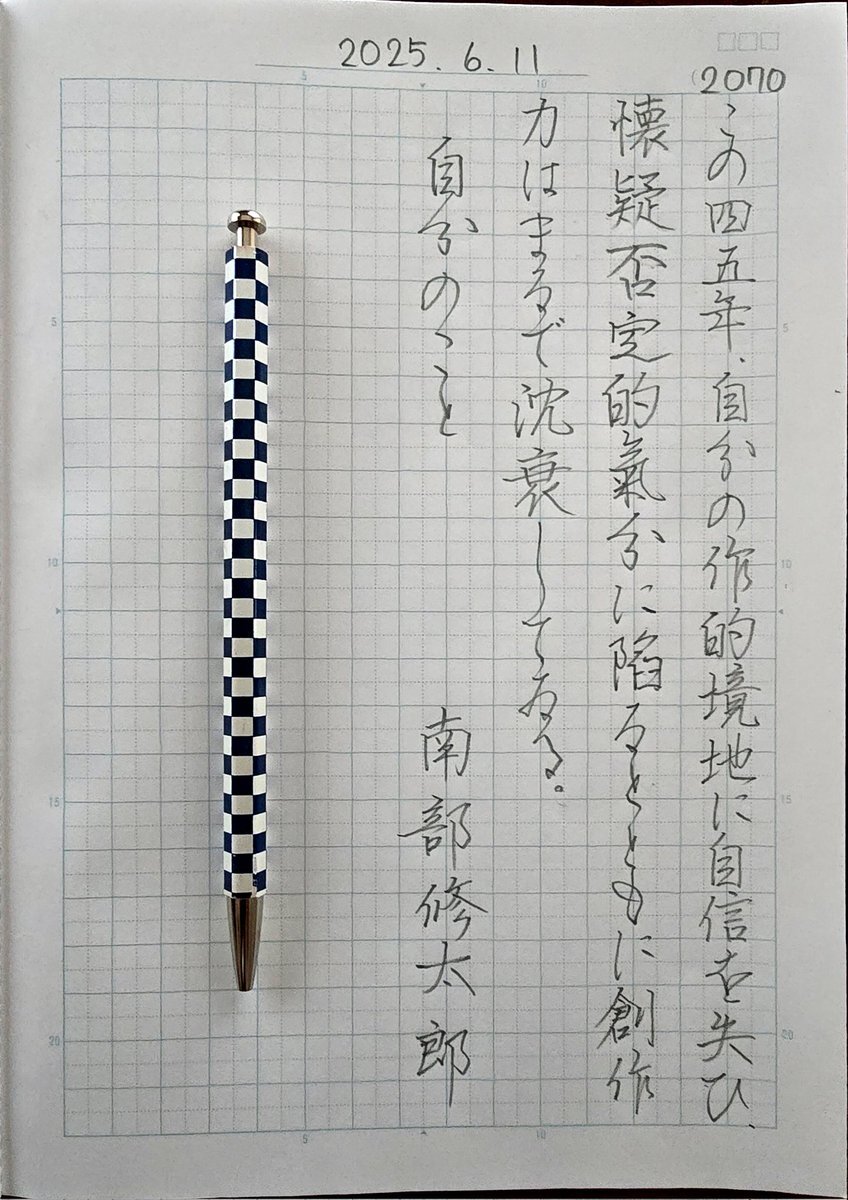 2025.6.11
(2070
この四五年、自分の作的境地に自信を失ひ、
懐疑否定的氣分に陷るとともに創作
力はまるで沈衰してゐる。
自分のこと
南部修太郎
5
10
5
10
15
20
5
10
15
20
5
10